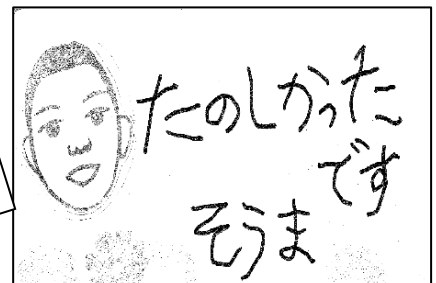 たのしかった
です
そうま